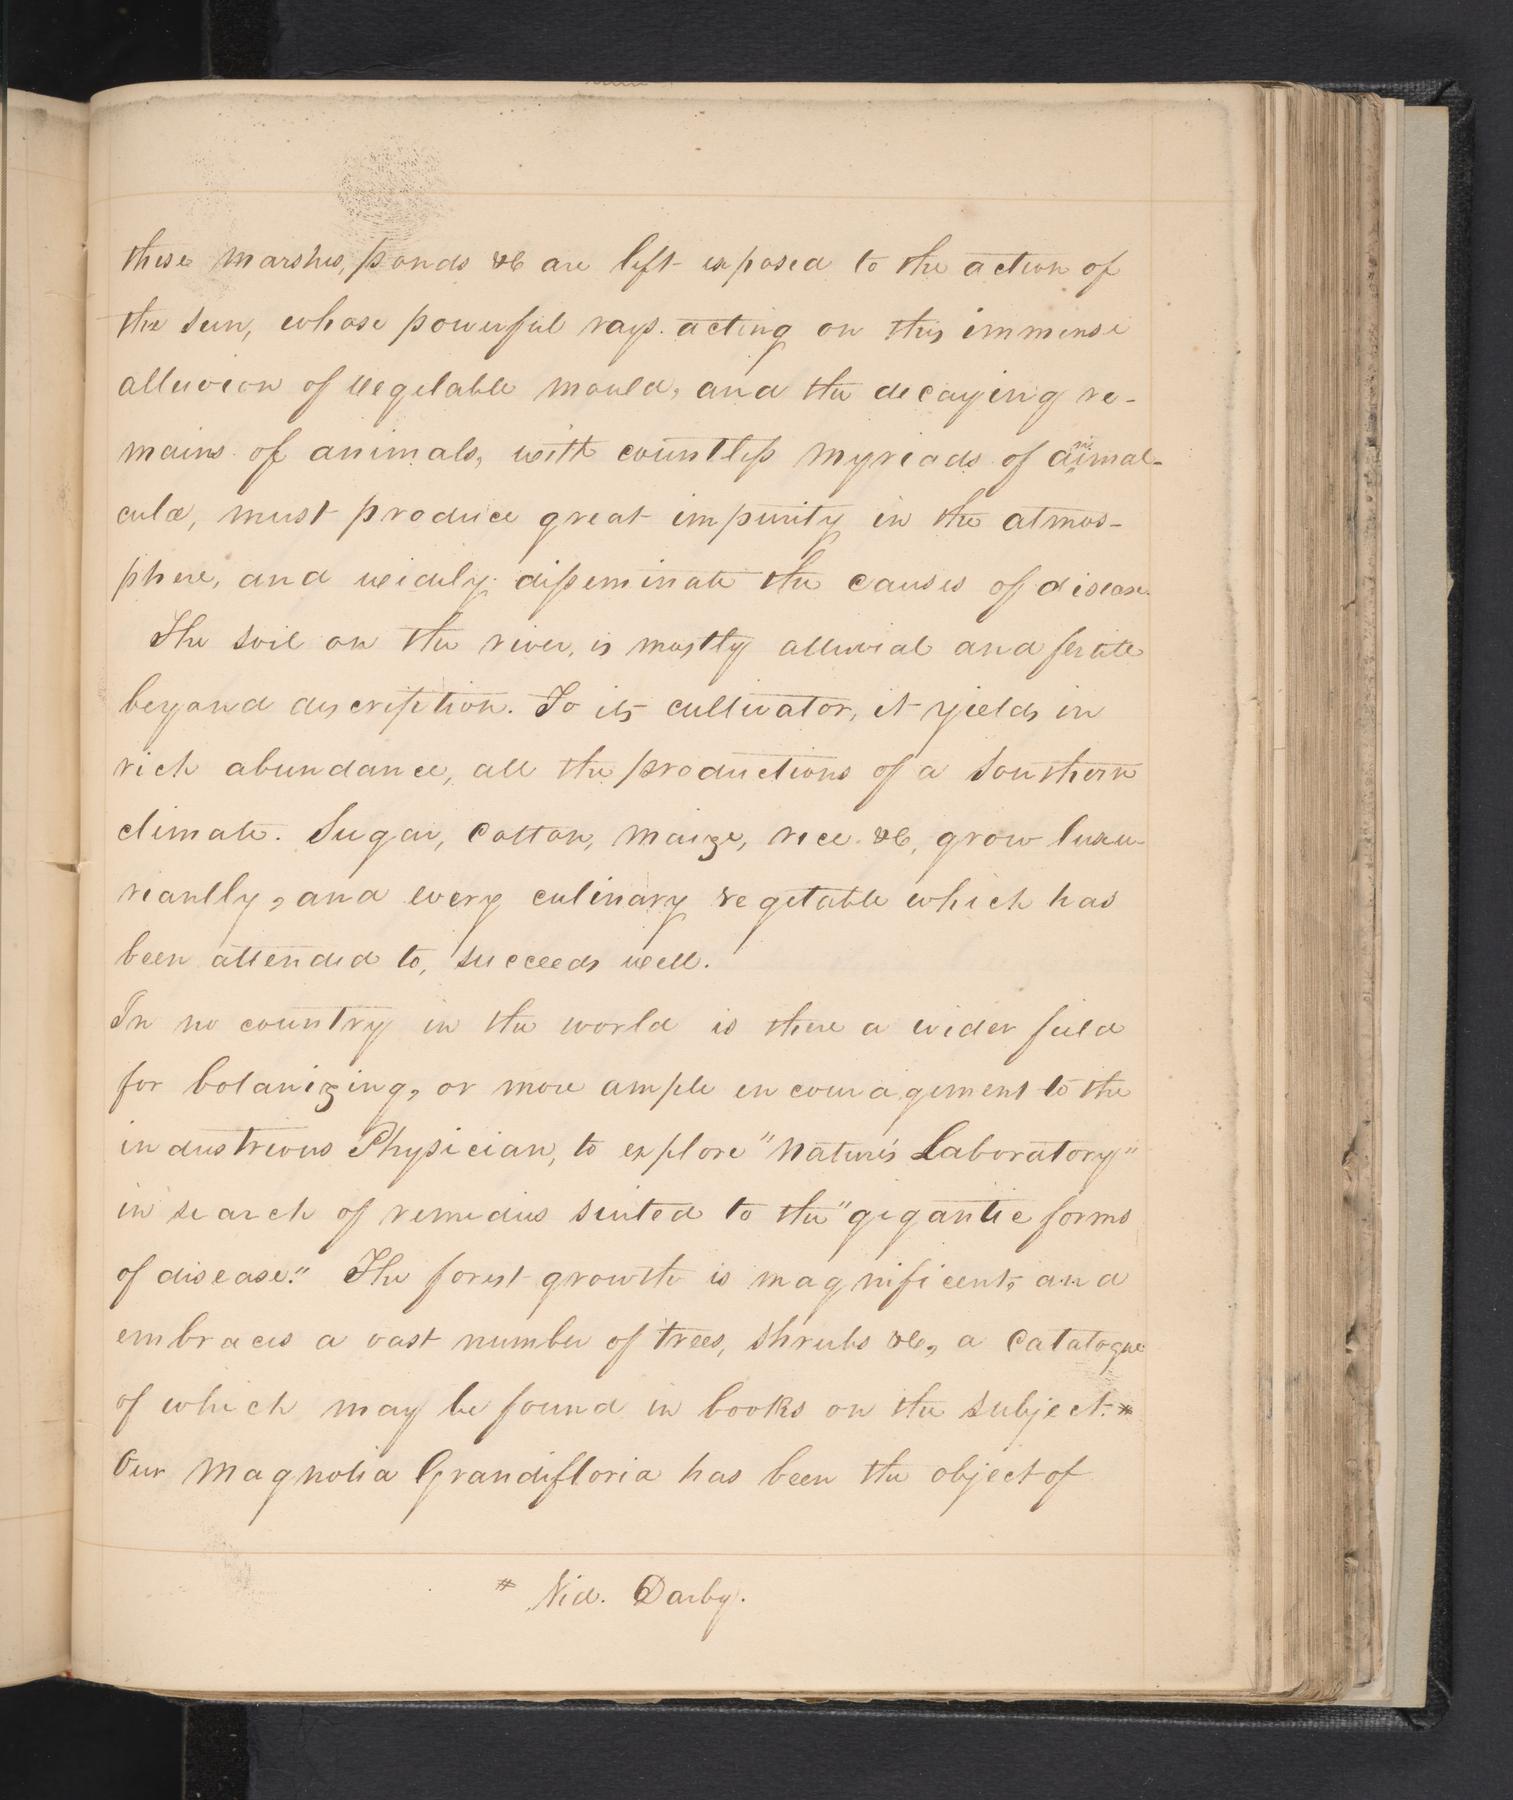 these marshes, ponds &c are left exposed to the action of
the sun, whose powerful rays acting on this immense
alluvion of vegetable mould, and the decaying re-
mains of animals, with countless myriads of animal-
culæ, must produce great impurity in the atmos-
phere, and widely disseminate the causes of disease.
The soil on the river, is mostly alluvial and fertile
beyond description. To its cultivator, it yields in
rich abundance, all the productions of a Southern
climate. Sugar, Cotton, Maize, rice &c, grow luxu-
riantly, and every culinary vegetable which has
been attended to, succeeds well.
In no country in the world is there a wider field
for botanizing, or more ample encouragement to the
industrious Physician, to explore "Nature's Laboratory"
in search of remedies suited to the "gigantic forms
of disease." The forest growth is magnificent, and
embraces a vast number of trees, shrubs &c, a Catalogue
of which may be found in books on the subject.*
Our Magnolia Grandifloria has been the object of
* Vid. Darby.